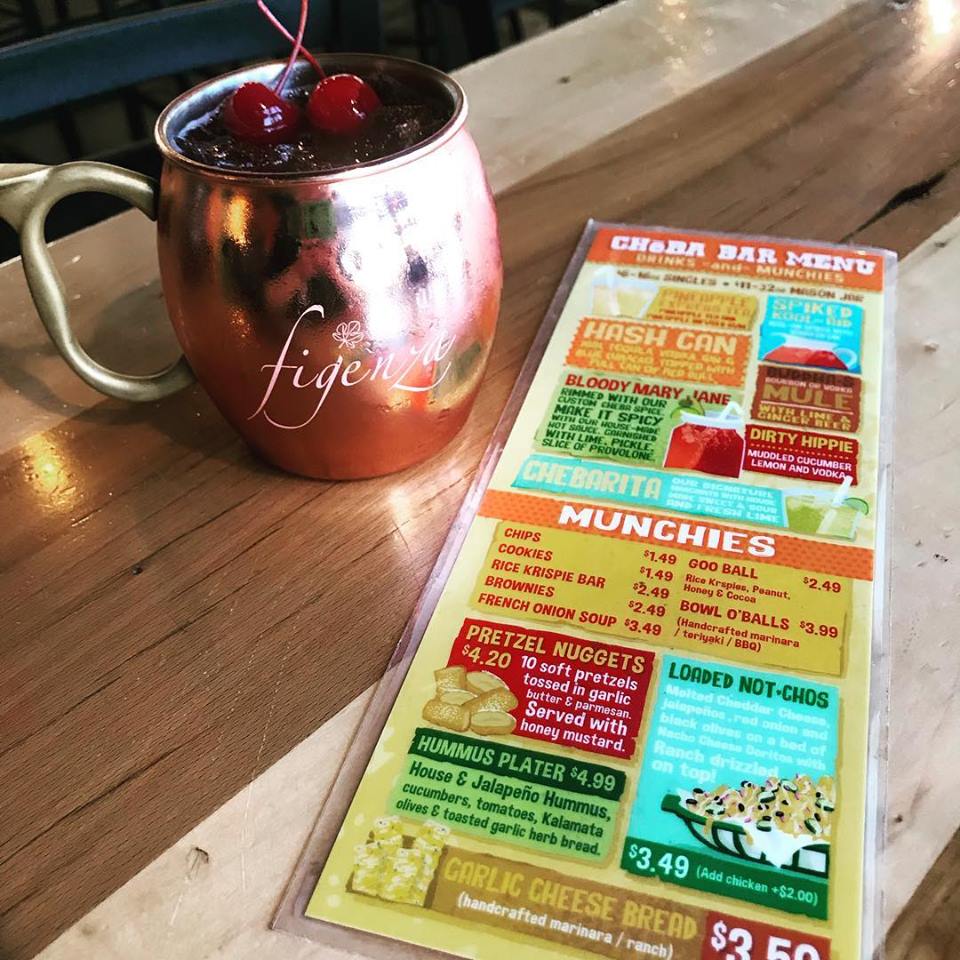 figenza
CHeBA BAR MENU
DRINKS -and- MUNCHIES
$6-16oz SINGLES • $11-32oz MASON JAR
PINEAPPLE
SPIKED
KOOL-AID
HASH CAN
FULL CAN OF RED BULL
BLOODY MARY JANE
RIMMED WITH OUR
CUSTOM CHEBA SPICE.
MAKE IT SPICY
WITH OUR HOUSE-MADE
HOT SAUCE. GARNISHED
WITH LIME, PICKLE,
SLICE OF PROVOLONE.
BOURBON OR VODKA
MULE
WITH LIME &
GINGER BEER
DIRTY HIPPIE
MUDDLED CUCUMBER
LEMON AND VODKA
CHEBARITA
OUR SIGNATURE
MARGARITA WITH HOUSE
MADE SWEET & SOUR
AND FRESH LIME
MUNCHIES
CHIPS $1.49
COOKIES $1.49
RICE KRISPIE BAR $2.49
BROWNIES $2.49
FRENCH ONION SOUP $3.49
GOO BALL $2.49
Rice Krspies, Peanut,
Honey & Cocoa
BOWL O'BALLS $3.99
(Handcrafted marinara
/ teriyaki / BBQ)
PRETZEL NUGGETS
$4.20 10 soft pretzels
tossed in garlic
butter & parmesan.
Served with
honey mustard.
LOADED NOT•CHOS
Melted Cheddar Cheese,
jalapeños, red onion and
black olives on a bed of
Nacho Cheese Doritos with
Ranch drizzled
on top!
$3.49 (Add chicken +$2.00)
HUMMUS PLATER $4.99
House & Jalapeño Hummus,
cucumbers, tomatoes, Kalamata
olives & toasted garlic herb bread.
GARLIC CHEESE BREAD
(handcrafted marinara / ranch)
$3.50